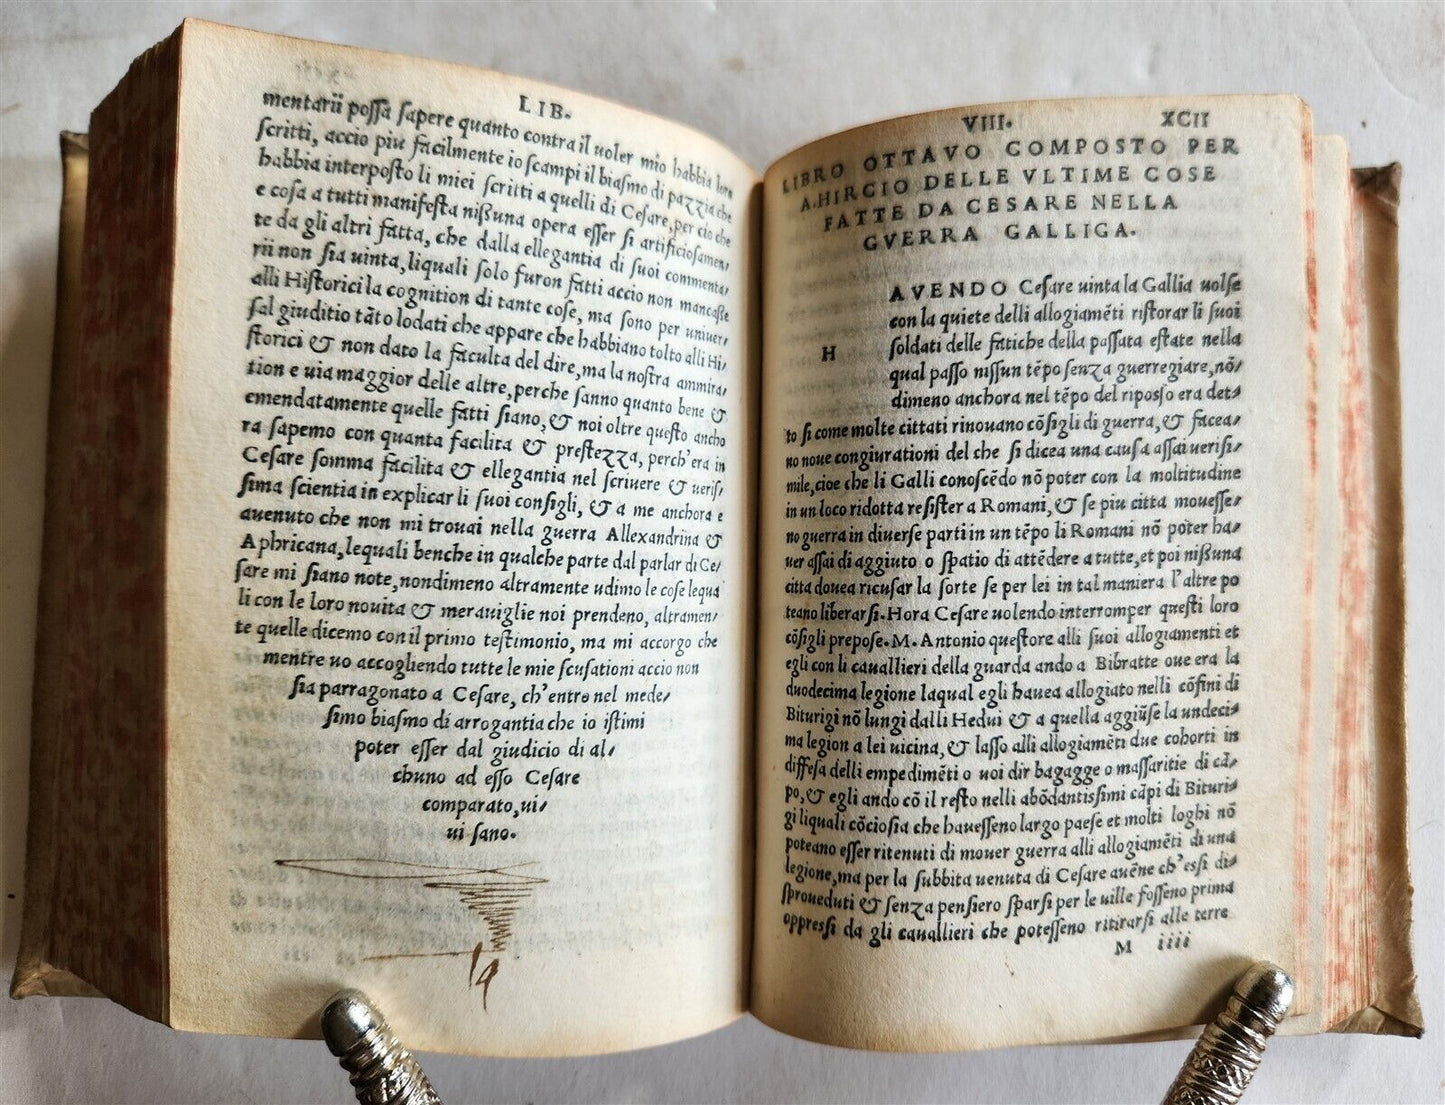 LIB.
mentarii possa sapere quanto contra il uoler mio habbia loro
scritti, accio piu facilmente io scampi il biasmo di pazzia che
habbia interposto li miei scritti a quelli di Cesare, per cio che
e cosa a tutti manifesta nissuna opera esser si artificiosamen/
te da gli altri fatta, che dalla ellegantia di suoi commenta/
rii non sia uinta, liquali solo furon fatti accio non mancasse
alli Historici la cognition di tante cose, ma sono per uniuer/
sal giuditio tãto lodati che appare che habbiano tolto alli Hi/
storici & non dato la faculta del dire, ma la nostra ammira/
tion e uia maggior delle altre, perche sanno quanto bene &
emendatamente quelle fatti siano, & noi oltre questo ancho
ra sapemo con quanta facilita & prestezza, perch'era in
Cesare somma facilita & ellegantia nel scriuere & ueris/
sima scientia in explicar li suoi consigli, & a me anchora e
auenuto che non mi trouai nella guerra Allexandrina &
Aphricana, lequali benche in qualche parte dal parlar di Ce/
sare mi siano note, nondimeno altramente udimo le cose lequa
li con le loro nouita & merauiglie noi prendeno, altramen/
te quelle dicemo con il primo testimonio, ma mi accorgo che
mentre uo accogliendo tutte le mie scusationi accio non
sia parragonato a Cesare, ch'entro nel mede/
simo biasmo di arrogantia che io istimi
poter esser dal giudicio di al/
chuno ad esso Cesare
comparato, ui/
ui sano.
VIII. XCII
LIBRO OTTAVO COMPOSTO PER
A. HIRCIO DELLE VLTIME COSE
FATTE DA CESARE NELLA
GVERRA GALLIGA.
AVENDO Cesare uinta la Gallia uolse
con la quiete delli allogiamẽti ristorar li suoi
H soldati delle fatiche della passata estate nella
qual passo nissun tẽpo senza guerregiare, nõ/
dimeno anchora nel tẽpo del riposso era det/
to si come molte cittati rinouano cõsigli di guerra, & facea/
no noue congiurationi del che si dicea una causa assai uerisi/
mile, cioe che li Galli conoscẽdo nõ poter con la moltitudine
in un loco ridotta resister a Romani, & se piu citta mouesse/
no guerra in diuerse parti in un tẽpo li Romani nõ poter ha/
uer assai di aggiuto o spatio di attẽdere a tutte, et poi nissuna
citta douea ricusar la sorte se per lei in tal maniera l'altre po
teano liberarsi. Hora Cesare uolendo interromper questi loro
cõsigli prepose. M. Antonio questore alli suoi allogiamenti et
egli con li cauallieri della guarda ando a Bibratte oue era la
duodecima legione laqual egli hauea allogiato nelli cõfini di
Biturigi nõ lungi dalli Hedui & a quella aggiũse la undeci/
ma legion a lei uicina, & lasso alli allogiamẽti due cohorti in
diffesa delli empedimẽti o uoi dir bagagge o massaritie di cã/
po, & egli ando cõ il resto nelli abõdantissimi cãpi di Bituri/
gi liquali cõciosia che hauesseno largo paese et molti loghi nõ
poteano esser ritenuti di mouer guerra alli allogiamẽti di una
legione, ma per la subbita uenuta di Cesare auẽne ch'essi di/
sproueduti & senza pensiero sparsi per le uille fosseno prima
oppressi da gli cauallieri che potesseno ritirarsi alle terre
M iiii